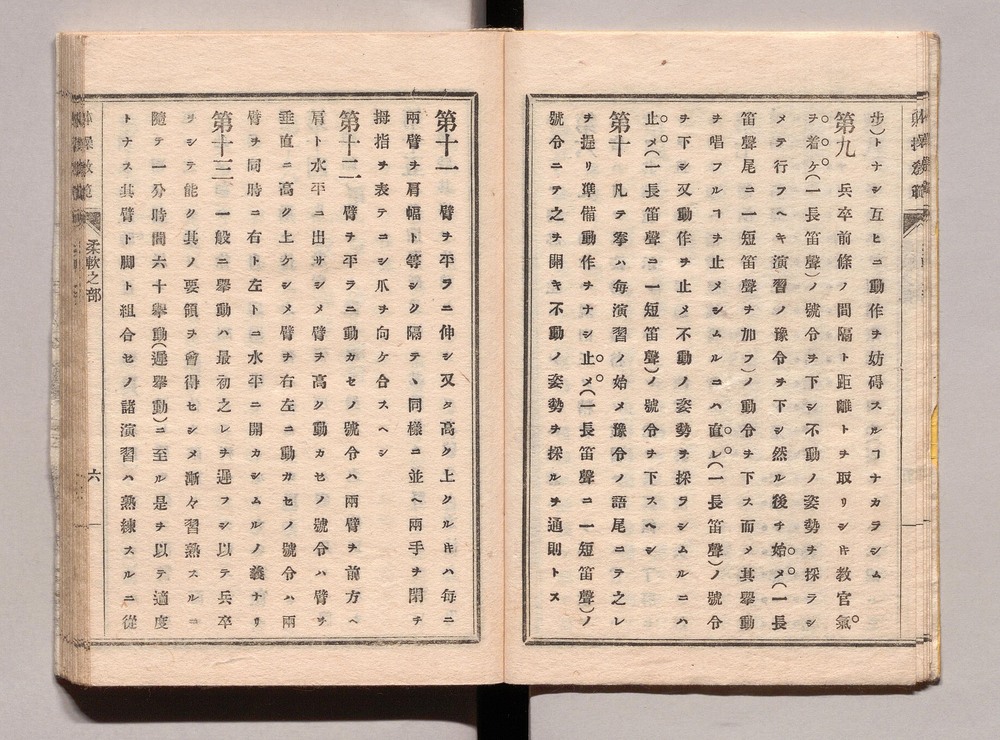 步)トナシ互ヒニ動作ヲ妨碍スルヿナカラシム
第九　兵卒前條ノ間隔ト距離トヲ取リシキ教官氣
ヲ着ケ(一長笛聲)ノ號令ヲ下シ不動ノ姿勢ヲ採ラシ
メテ行フヘキ演習ノ豫令ヲ下シ然ル後チ始メ(一長
笛聲尾ニ一短笛聲ヲ加フ)ノ動令ヲ下ス而メ其擧動
ヲ唱フルヿヲ止メシムルニハ直レ(一長笛聲)ノ號令
ヲ下シ又動作ヲ止メ不動ノ姿勢ヲ採ラシムルニハ
止メ(一長笛聲ニ一短笛聲)ノ號令ヲ下スヘシ
第十　凡テ拳ハ每演習ノ始メ豫令ノ語尾ニテ之レ
ヲ握リ準備動作ヲナシ止メ(一長笛聲ニ一短笛聲)ノ
號令ニテ之ヲ開キ不動ノ姿勢ヲ採ルヲ通則トス
第十一　臂ヲ平ラニ伸シ又タ高ク上クルキハ每ニ
兩臂ヲ肩幅ト等シク隔テヽ同樣ニ並ヘ兩手ヲ閉チ
拇指ヲ表テニシ爪ヲ向ケ合スヘシ
第十二　臂ヲ平ラニ動カセノ號令ハ兩臂ヲ前方ヘ
肩ト水平ニ出サシメ臂ヲ高ク動カセノ號令ハ臂ヲ
垂直ニ高ク上ケシメ臂ヲ右左ニ動カセノ號令ハ兩
臂ヲ同時ニ右ト左トニ水平ニ開カシムルノ義ナリ
第十三　一般ニ擧動ハ最初之レヲ遲フシ以テ兵卒
ヲシテ能ク其ノ要領ヲ會得セシメ漸々習熟スルニ
隨テ一分時間六十擧動(遲擧動)ニ至ル是ヲ以テ適度
トナス其臂ト脚ト組合セノ諸演習ハ熟練スルニ從
柔軟之部
六